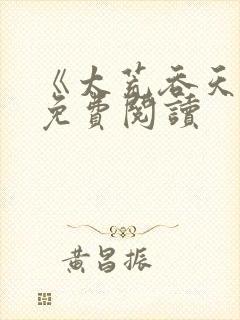 《大荒吞天
免費閱讀
黃昌振